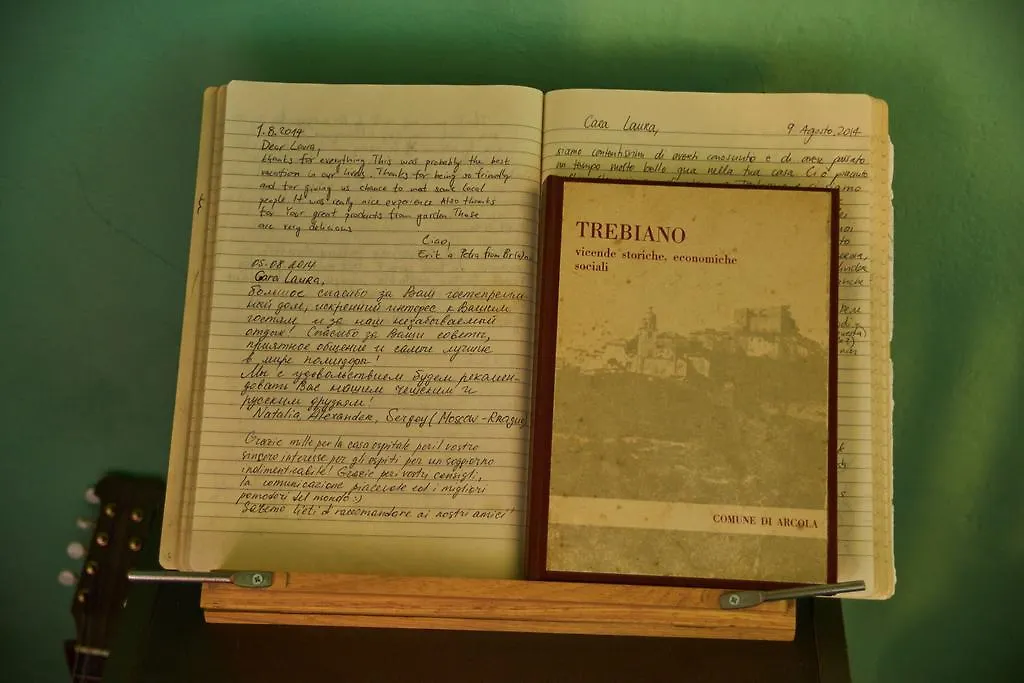 1.8.2014
Dear Laura,
thanks for everything. This was probably the best
vacation in our lives. Thanks for being so friendly
and for giving us chance to meet some local
people. It was really nice experience. Also thanks
for Your great products from garden. Those
are very delicious
Ciao,
Erik a Petra from
05.08.2014
Cara Laura,
Большое спасибо за Ваш
дом, искренний интерес к Вашим
гостям и за наш незабываемый
отдых! Спасибо за Ваши советы,
приятное общение и самые лучшие
в мире помидоры!
Мы с удовольствием будем рекомен-
довать Вас нашим чешским и
русским друзьям!
Natalia, Alexander, Sergey (Moscow-Prague)
Grazie mille per la casa ospitale per il vostro
sincero interesse per gli ospiti per un soggiorno
indimenticabile! Grazie per i vostri consigli,
la comunicazione piacevole ed i migliori
pomodori del mondo :)
Saremo lieti d raccomandare ai nostri amici!
Cara Laura,
9 Agosto, 2014
siamo contentissimi di averti conosciuto e di avere passato
un tempo molto bello qua nella tua casa. Ci è piaciuto
TREBIANO
vicende storiche, economiche
sociali
COMUNE DI ARCOLA